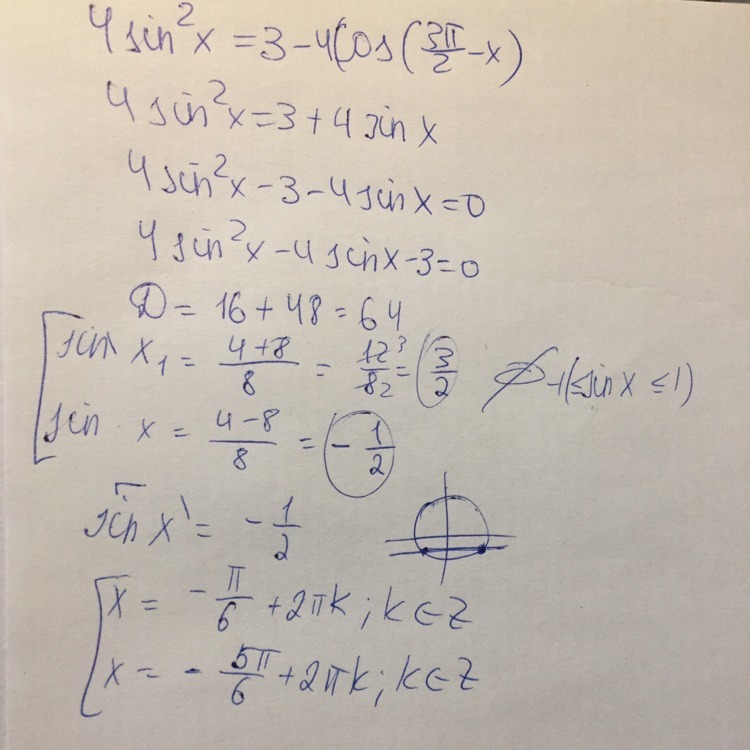 4 sin²x = 3 - 4Cos(3π/2 - x)
4 sin²x = 3 + 4 sin x
4 sin²x - 3 - 4 sin x = 0
4 sin²x - 4 sin x - 3 = 0
D = 16 + 48 = 64
sin x₁ = (4+8)/8 = 12³/8₂ = 3/2 ∅ -1(≤ sin x ≤ 1)
sin x = (4-8)/8 = -1/2
sin x = -1/2
x = -π/6 + 2πk; k ∈ Z
x = -5π/6 + 2πk; k ∈ Z